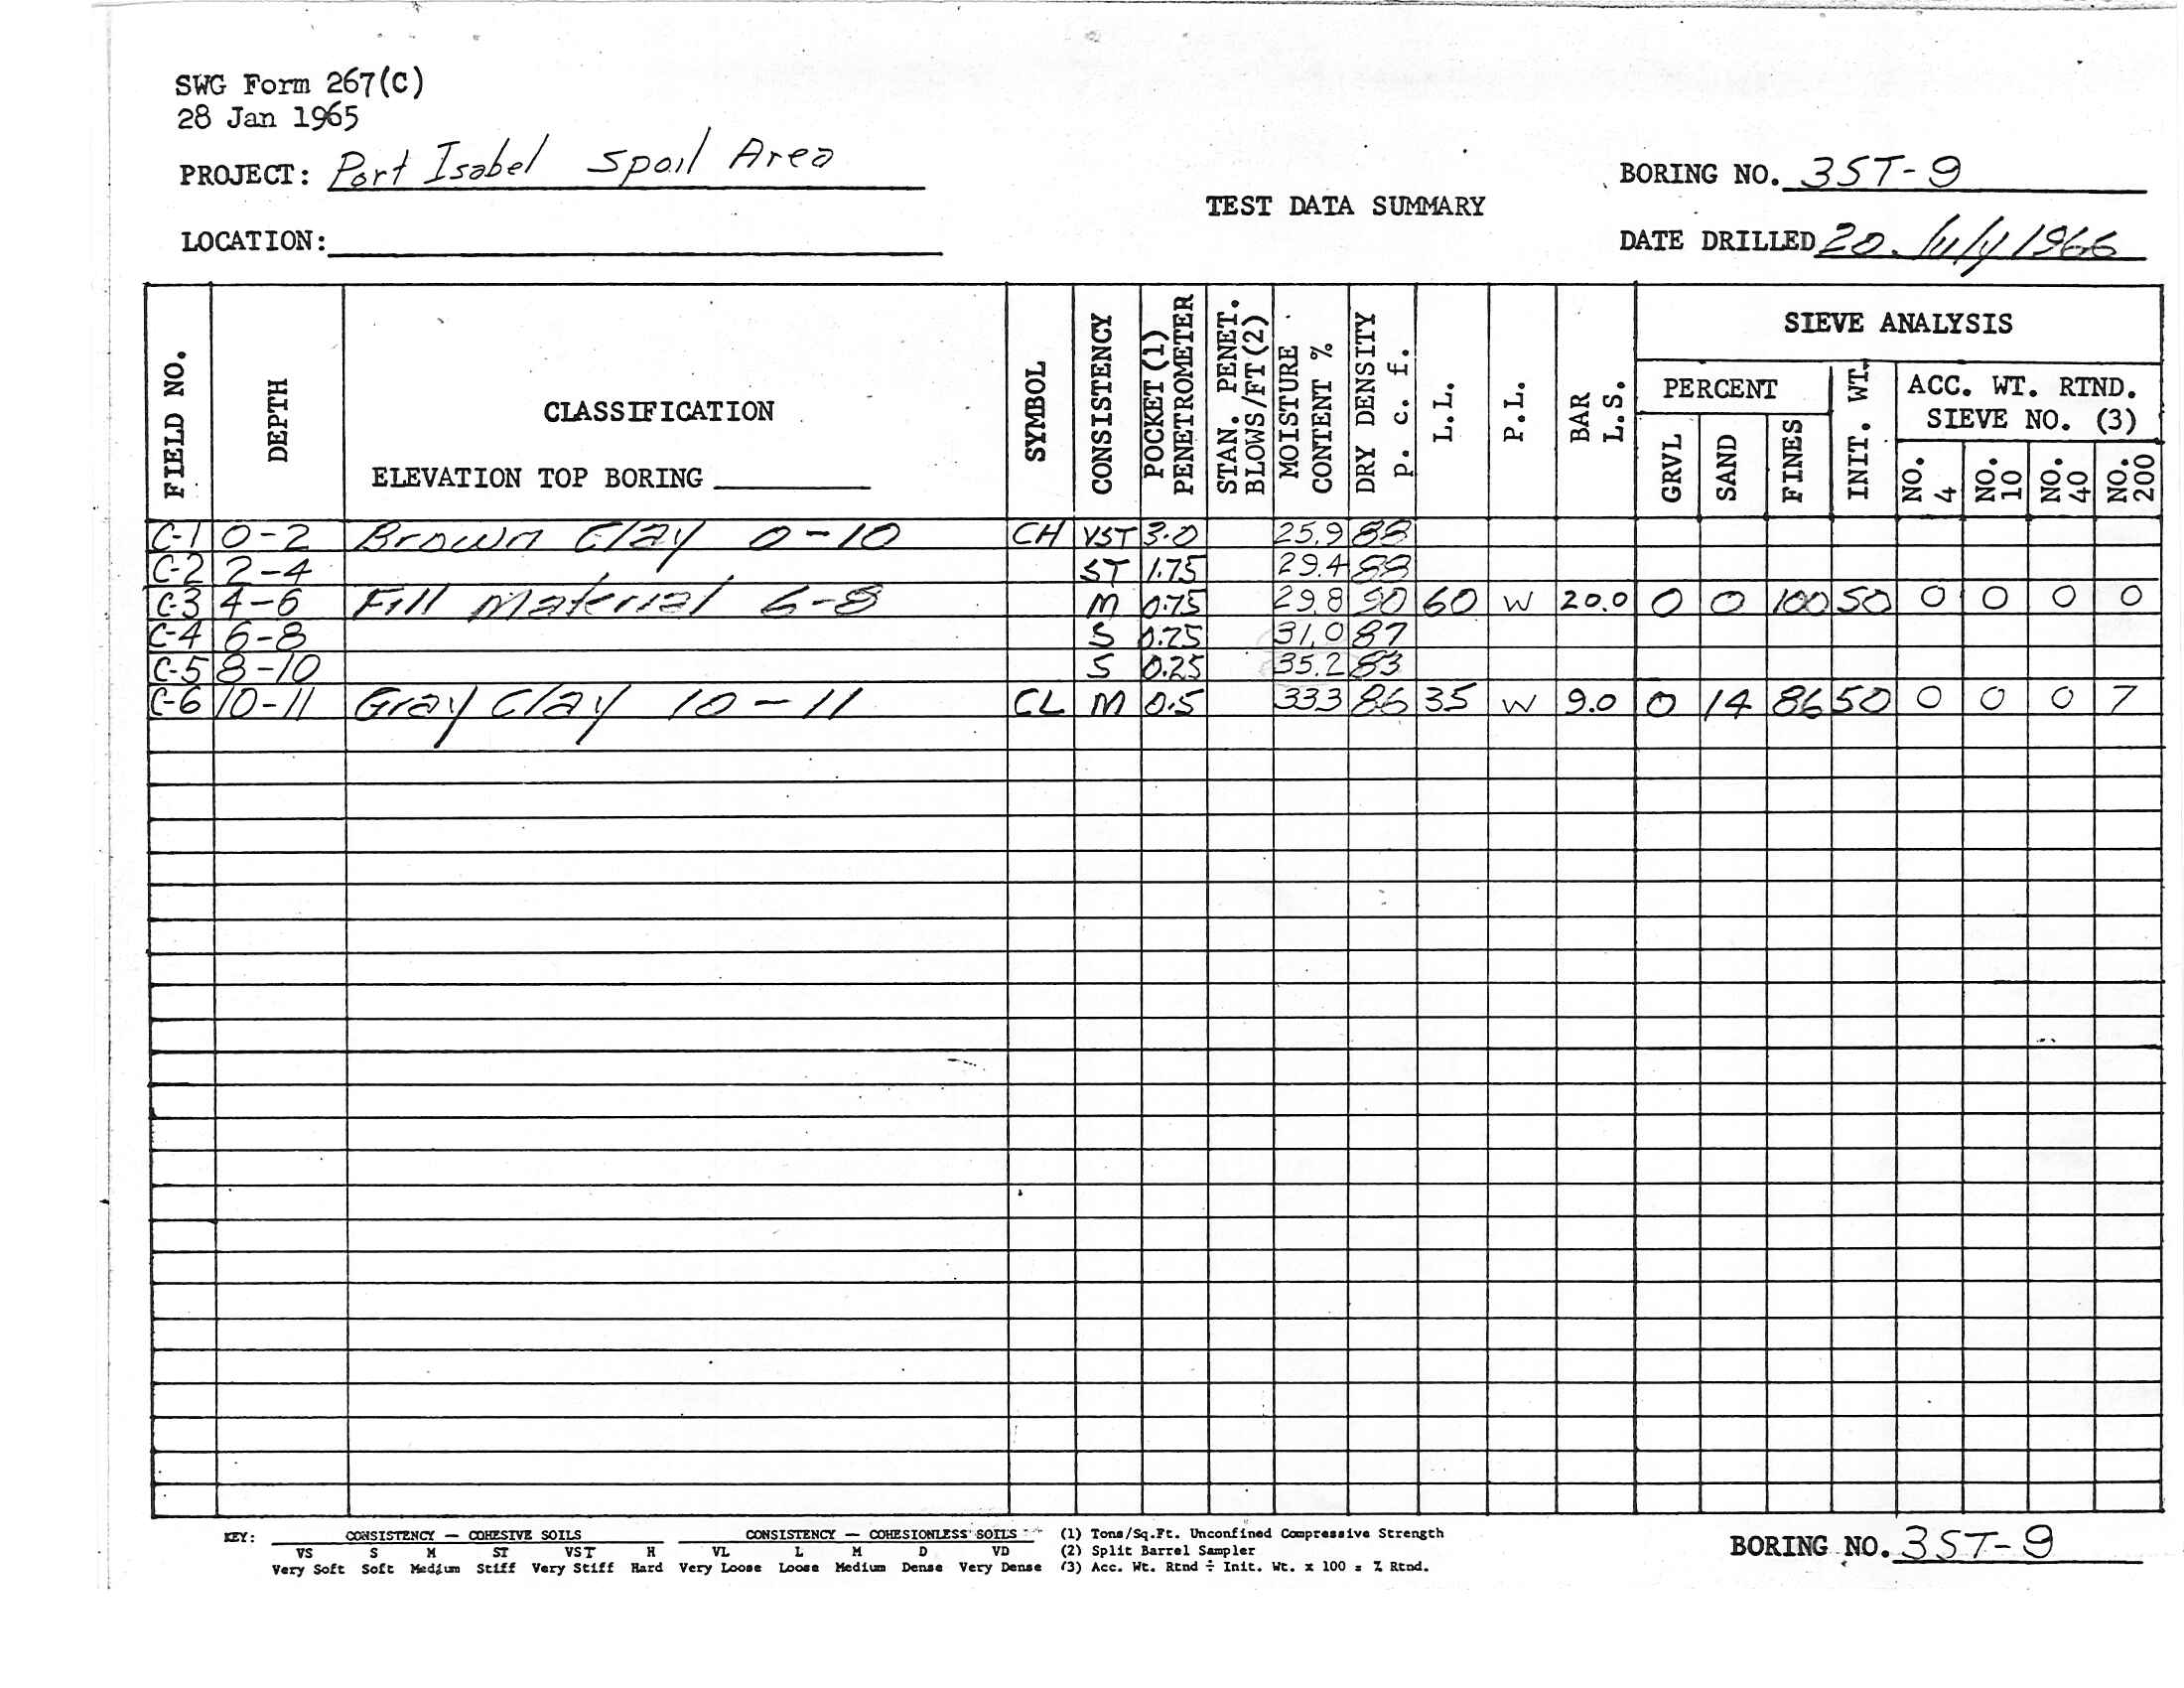 SWG Form 267(C)
28 Jan 1965
PROJECT: Port Isabel Spoil Area
BORING NO. 3ST-9
TEST DATA SUMMARY
LOCATION:
DATE DRILLED 20 July 1966
FIELD NO. DEPTH CLASSIFICATION SYMBOL CONSISTENCY POCKET (1) PENETROMETER STAN. PENET. BLOWS/FT(2) MOISTURE CONTENT % DRY DENSITY p. c. f. L.L. P.L. BAR L.S. SIEVE ANALYSIS
PERCENT INIT. WT. ACC. WT. RTND. SIEVE NO. (3)
ELEVATION TOP BORING
GRVL SAND FINES NO. 4 NO. 10 NO. 40 NO. 200
C-1 0-2 Brown Clay 0-10 CH VST 3.0 25.9
C-2 2-4 ST 1.75 29.4
C-3 4-6 Fill Material 6-8 M 0.75 29.8 90 60 W 20.0 0 0 100 50 0 0 0 0
C-4 6-8 S 0.25 31.0 87
C-5 8-10 S 0.25 35.2 83
C-6 10-11 Gray Clay 10-11 CL M 0.5 33.3 86 35 W 9.0 0 14 86 50 0 0 0 7
KEY: CONSISTENCY — COHESIVE SOILS CONSISTENCY — COHESIONLESS SOILS (1) Tons/Sq.Ft. Unconfined Compressive Strength
VS S M ST VST H VL L M D VD (2) Split Barrel Sampler
Very Soft Soft Medium Stiff Very Stiff Hard Very Loose Loose Medium Dense Very Dense (3) Acc. Wt. Rtnd ÷ Init. Wt. x 100 = % Rtnd.
BORING NO. 3ST-9